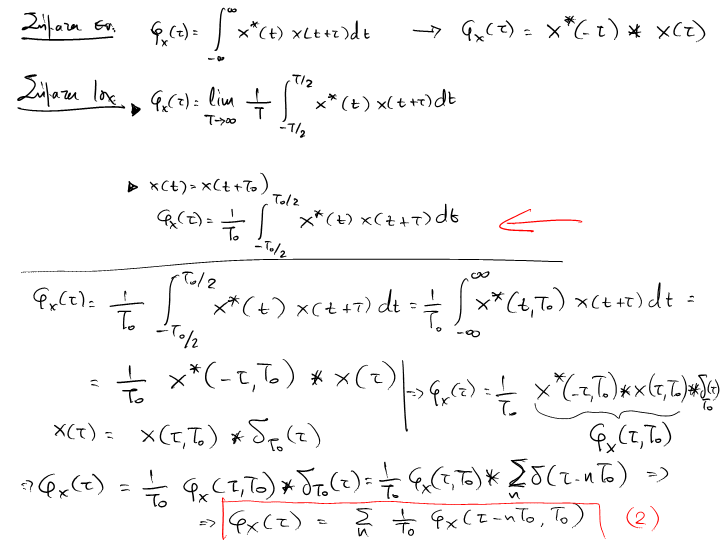 Σήματα εν. φ_x(τ) = ∫_{-∞}^{∞} x*(t) x(t+τ) dt → φ_x(τ) = x*(-τ) * x(τ)
Σήματα ισχ. ▶ φ_x(τ) = lim_{T→∞} 1/T ∫_{-T/2}^{T/2} x*(t) x(t+τ) dt
▶ x(t) = x(t+T₀)
φ_x(τ) = 1/T₀ ∫_{-T₀/2}^{T₀/2} x*(t) x(t+τ) dt ←
φ_x(τ) = 1/T₀ ∫_{-T₀/2}^{T₀/2} x*(t) x(t+τ) dt = 1/T₀ ∫_{-∞}^{∞} x*(t,T₀) x(t+τ) dt =
= 1/T₀ x*(-τ,T₀) * x(τ) | ⇒ φ_x(τ) = 1/T₀ x*(-τ,T₀) * x(τ,T₀) * δ_{T₀}(τ)
x(τ) = x(τ,T₀) * δ_{T₀}(τ) φ_x(τ,T₀)
⇒ φ_x(τ) = 1/T₀ φ_x(τ,T₀) * δ_{T₀}(τ) = 1/T₀ φ_x(τ,T₀) * Σ_n δ(τ-nT₀) ⇒
⇒ φ_x(τ) = Σ_n 1/T₀ φ_x(τ-nT₀, T₀) (2)